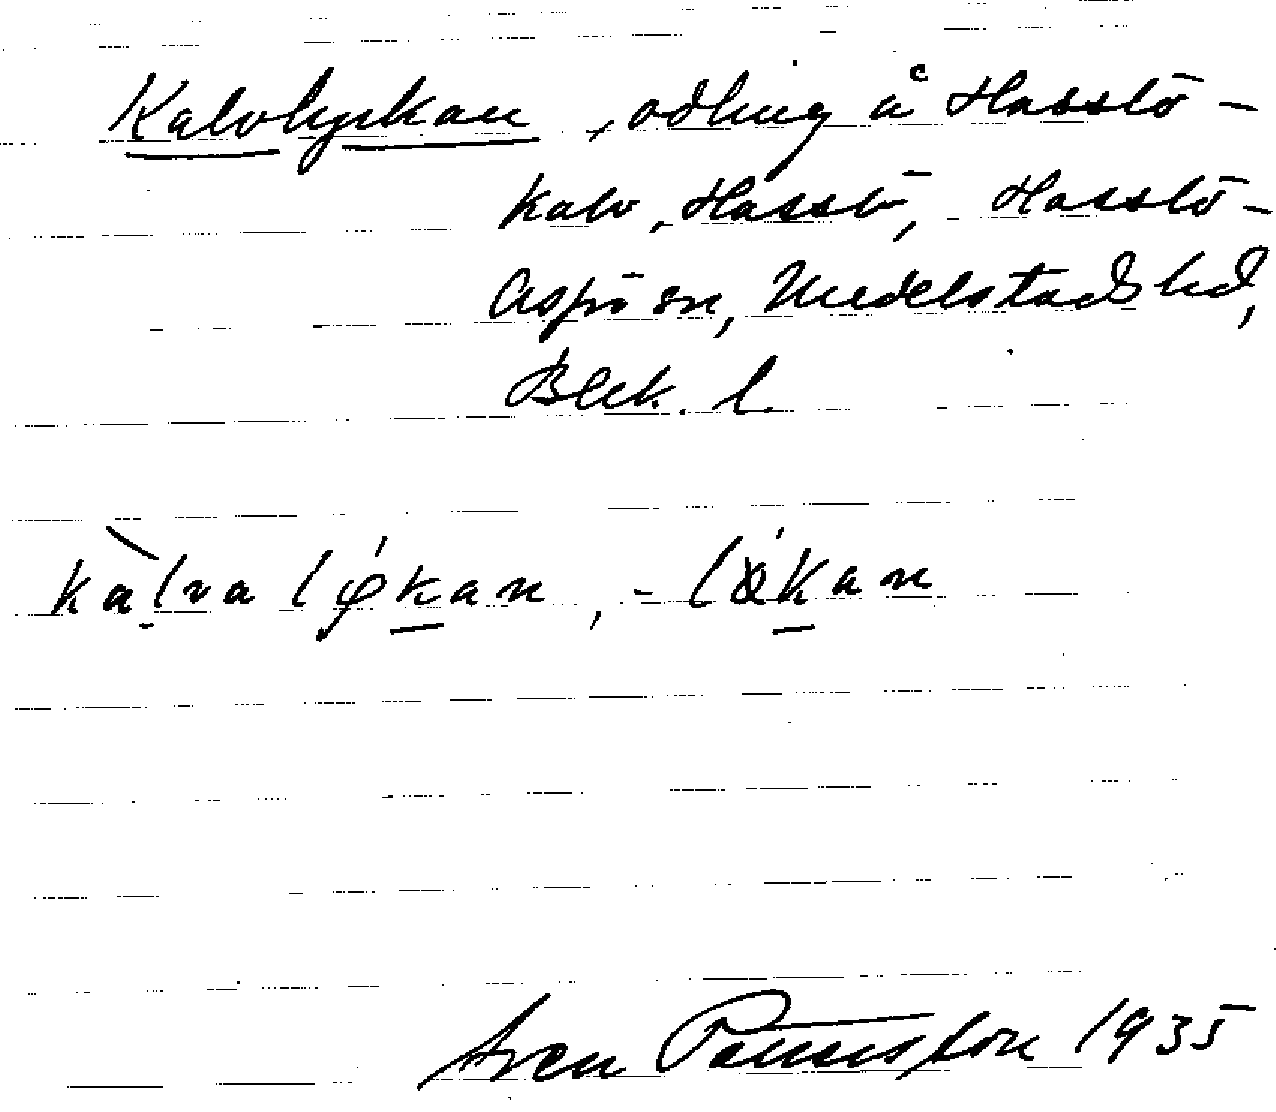 Kalvlyckan, odling å Hasslö-
kalv, Hasslö, Hasslö-
Aspö sn, Medelstads hd,
Blek. l.
kalva lykan, - løkan
Sven Paulsson 1935